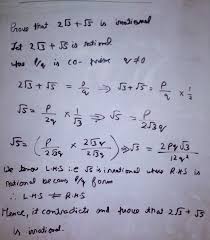 Prove that 2√3 + √5 is irrational
Let 2√3 + √5 is rational
p/q is co-prime q ≠ 0
2√3 + √5 = p/q ⇒ √3 + √5 = p/q × 1/2
√5 = p/2q × 1/√3 ⇒ √5 = p/2√3q
√5 = (p/2√3q × 2√3q/2√3q) ⇒ √5 = 2pq√3/12q²
We know L.H.S i.e √5 is irrational where R.H.S
is rational because p/q form
∴ L.H.S ≠ R.H.S
Hence, it contradicts and prove that 2√3 + √5
is irrational.